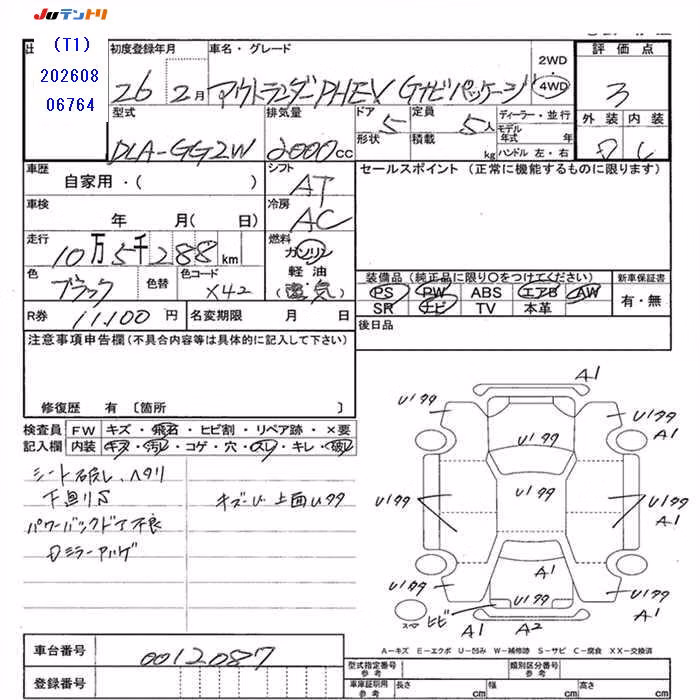 JUテントリ
(T1)
202608
06764
初度登録年月
26 2月
車名・グレード
アウトランダーPHEV Gナビパッケージ
2WD
4WD
評価点
3
外装 内装
D C
型式
DLA-GG2W
排気量
2000cc
ドア 5
形状
定員 5人
積載 kg
ディーラー・並行
モデル年式 年
ハンドル 左・右
車歴
自家用・( )
車検
年 月( 日)
走行
10万5千288km
色
ブラック
色替
色コード
X42
シフト
AT
冷房
AC
燃料
ガソリン
軽油
(電気)
セールスポイント (正常に機能するものに限ります)
装備品(純正品に限り○をつけてください)
PS PW ABS エアB AW
SR ナビ TV 本革
新車保証書
有・無
R券 11,100円
名変期限 月 日
後日品
注意事項申告欄(不具合内容等は具体的に記入して下さい)
修復歴 有〔箇所 〕
検査員記入欄
FW キズ・飛石・ヒビ割・リペア跡・×要
内装 キズ・汚レ・コゲ・穴・スレ・キレ・破レ
シート破レ、ヘタリ
下廻りS
パワーバックドア不良
Dミラー
上面Uタタ
A1
U1タタ
Uタタ
Uタタ
A1
Uタタ
Uタタ
Uタタ
A1
A1
Uタタ
Uタタ
Uタタ
A1
スペア
ヒビ
A1
A2
A-キズ E-エクボ U-凹み W-補修跡 S-サビ C-腐食 XX-交換済
車台番号
0012087
登録番号
型式指定番号 参考
類別区分番号 参考
車庫証明用 参考
長さ cm
幅 cm
高さ cm